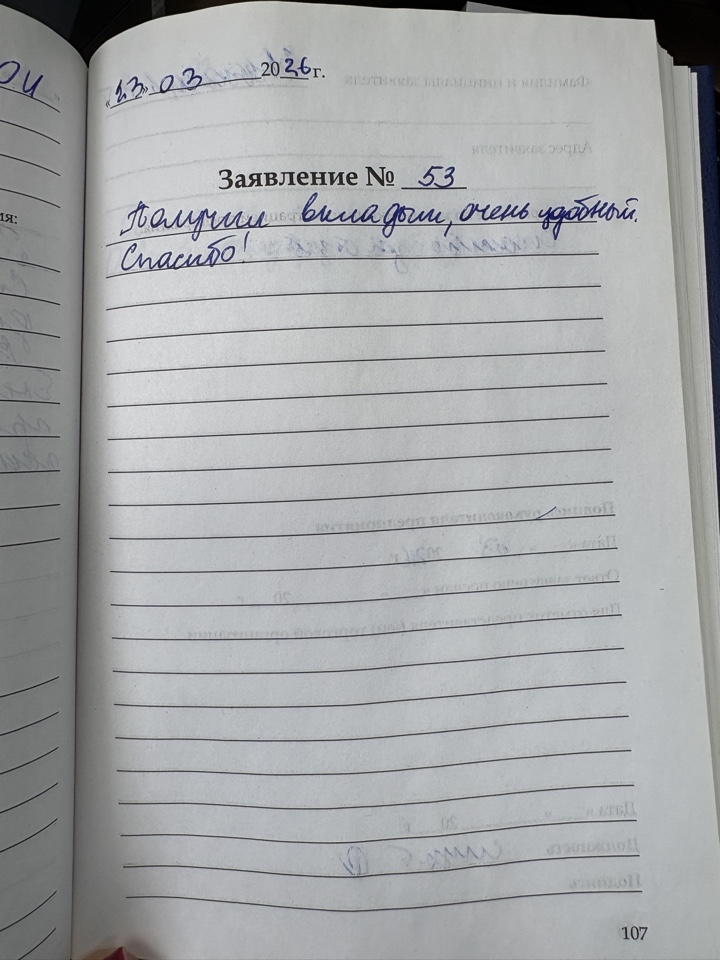 ОЙ
«23» 03 2026 г.
Заявление № 53
Получил вкладыш, очень удобный.
Спасибо!
ия:
107